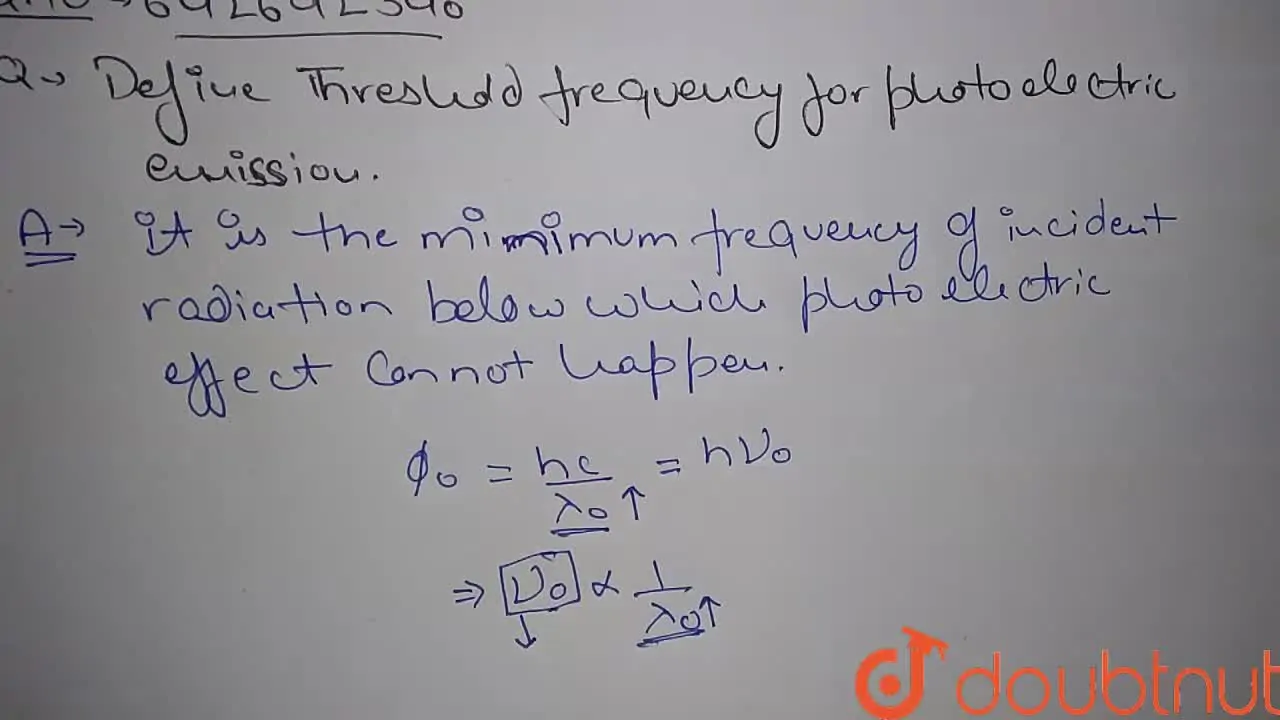 Q→ Define Threshold frequency for photoelectric
emission.
A→ it is the minimum frequency of incident
radiation below which photoelectric
effect cannot happen.
ϕ₀ = hc/λ₀ ↑ = hν₀
⇒ ν₀ ∝ 1/λ₀ ↑
↓
doubtnut